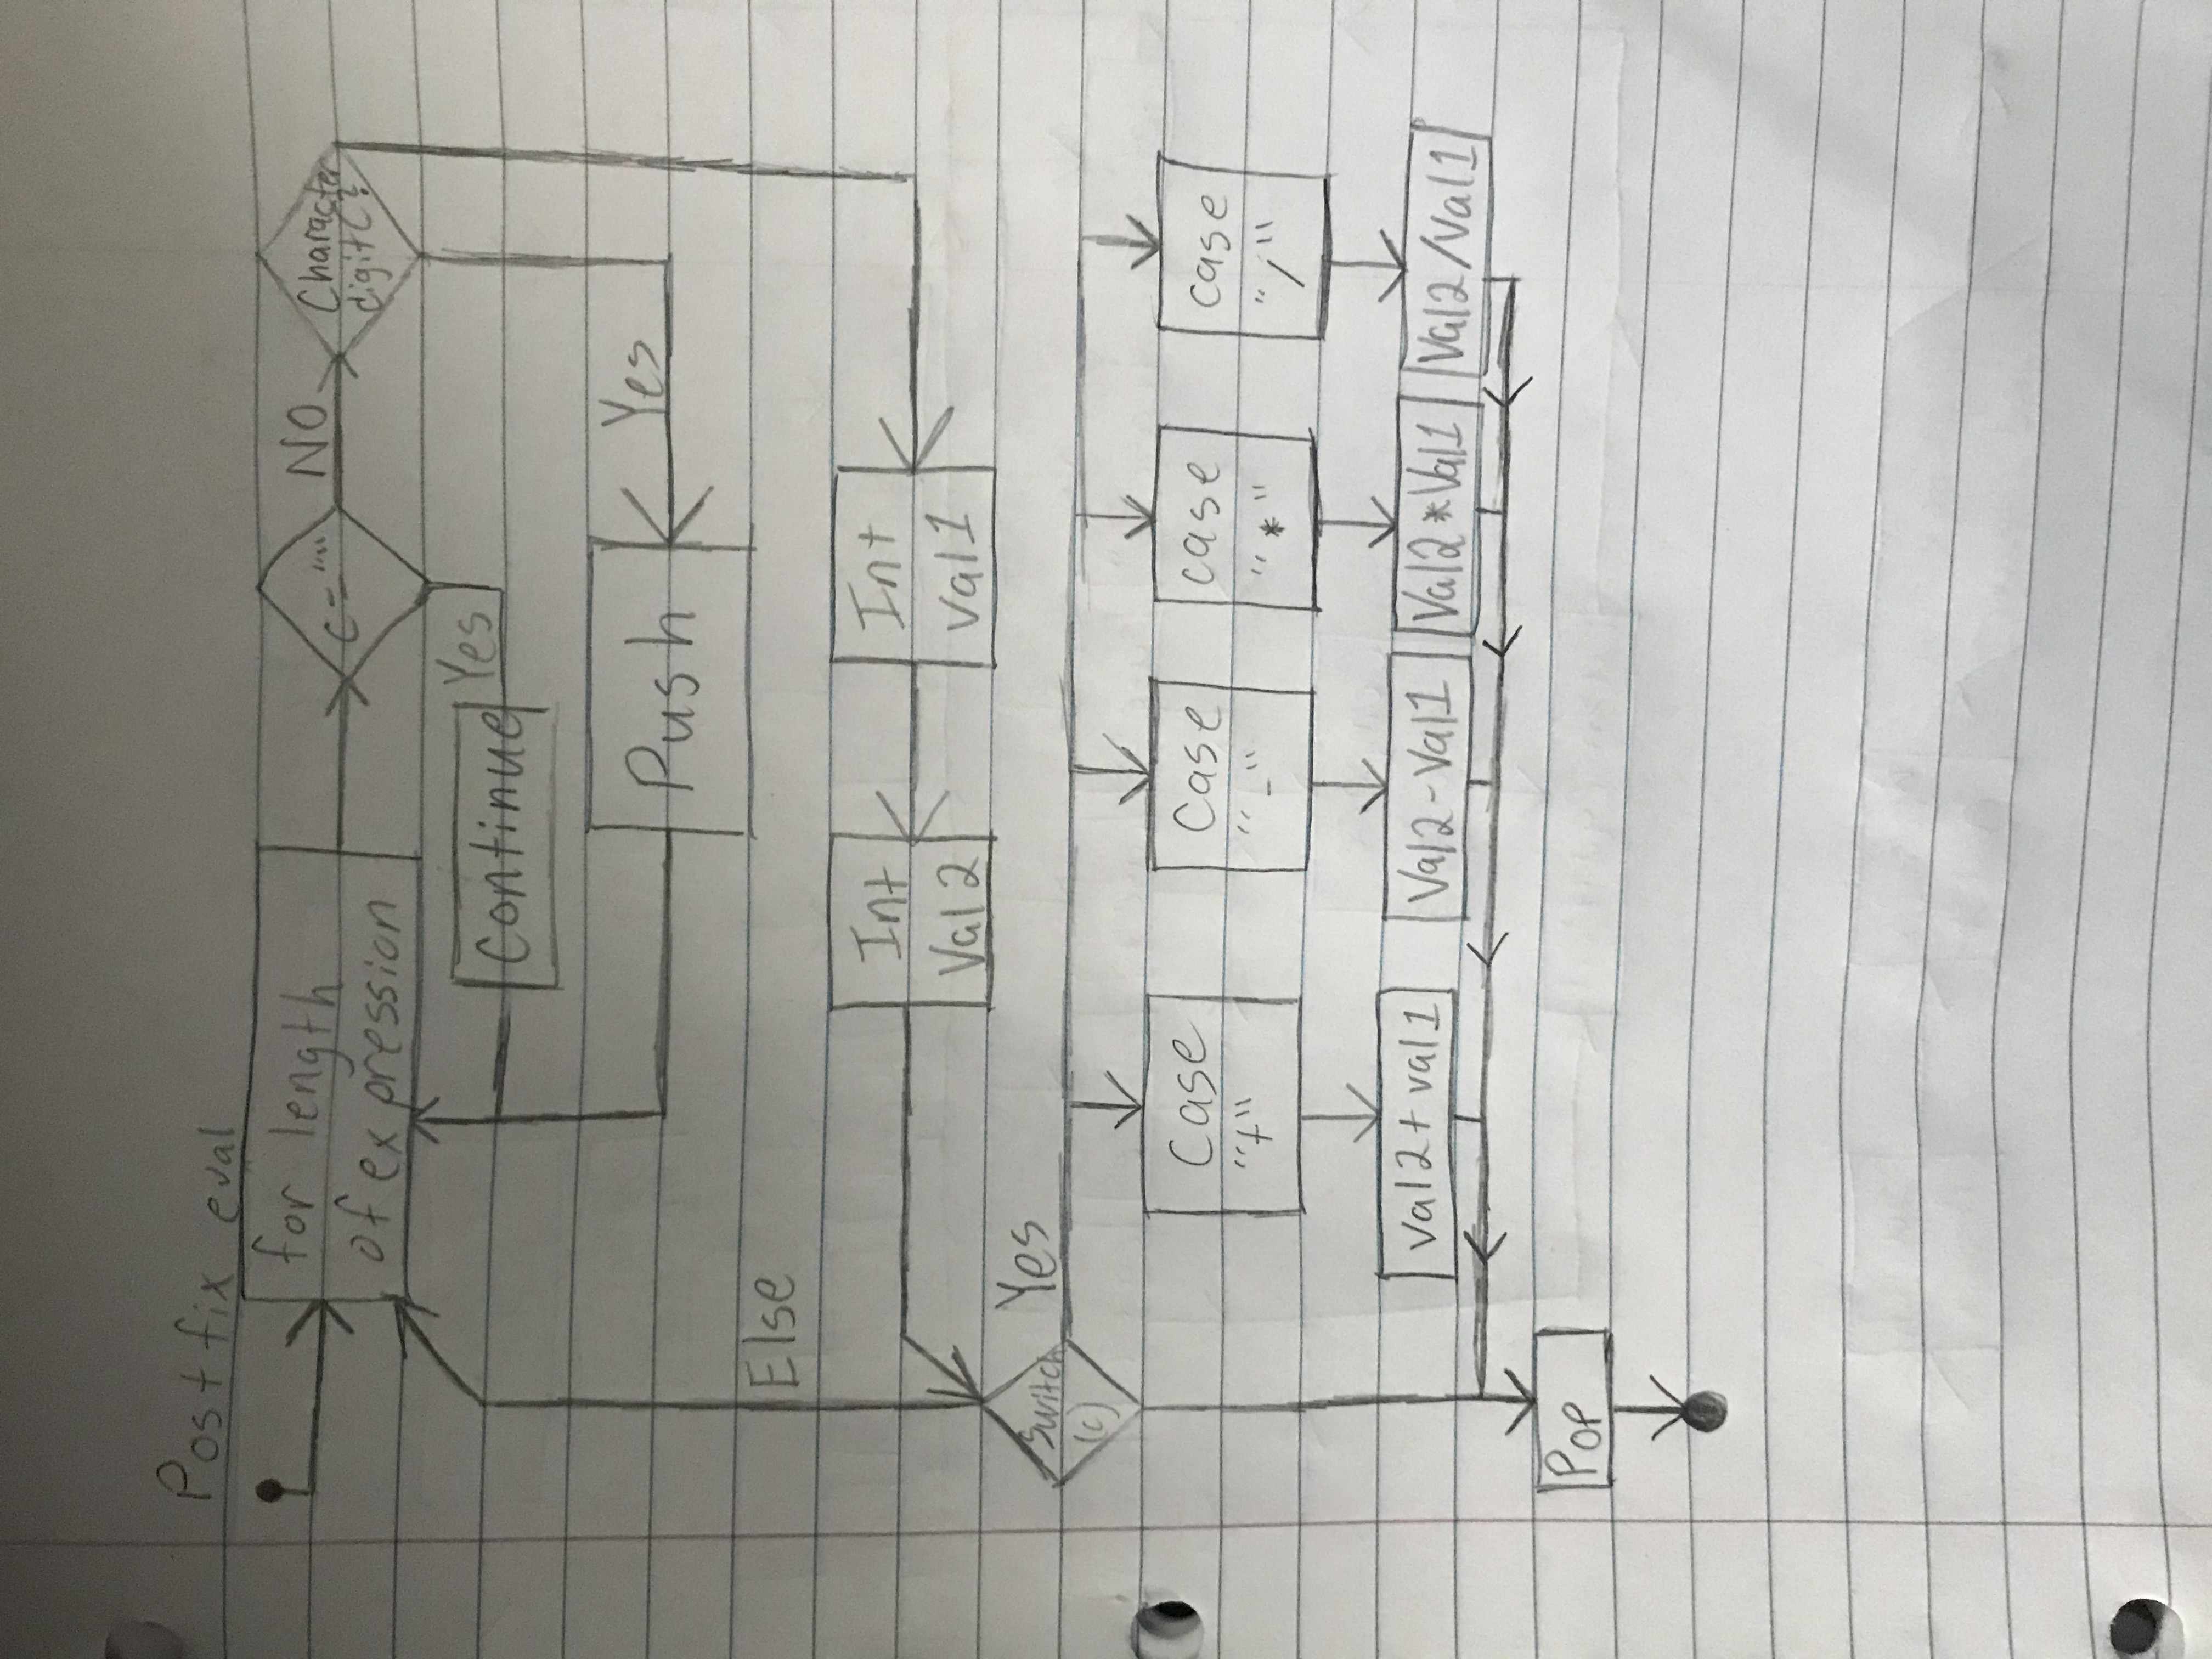 Postfix eval
for length
of expression
c = ""
NO
Character
digit C?
Yes
Continue
Push
Yes
Else
Int
Val 2
Int
Val 1
Switch
(c)
Yes
Case
"+"
Case
"-"
case
"*"
case
"/"
Val2 + val1
Val2 - Val1
Val2 * Val1
Val2 / Val1
Pop